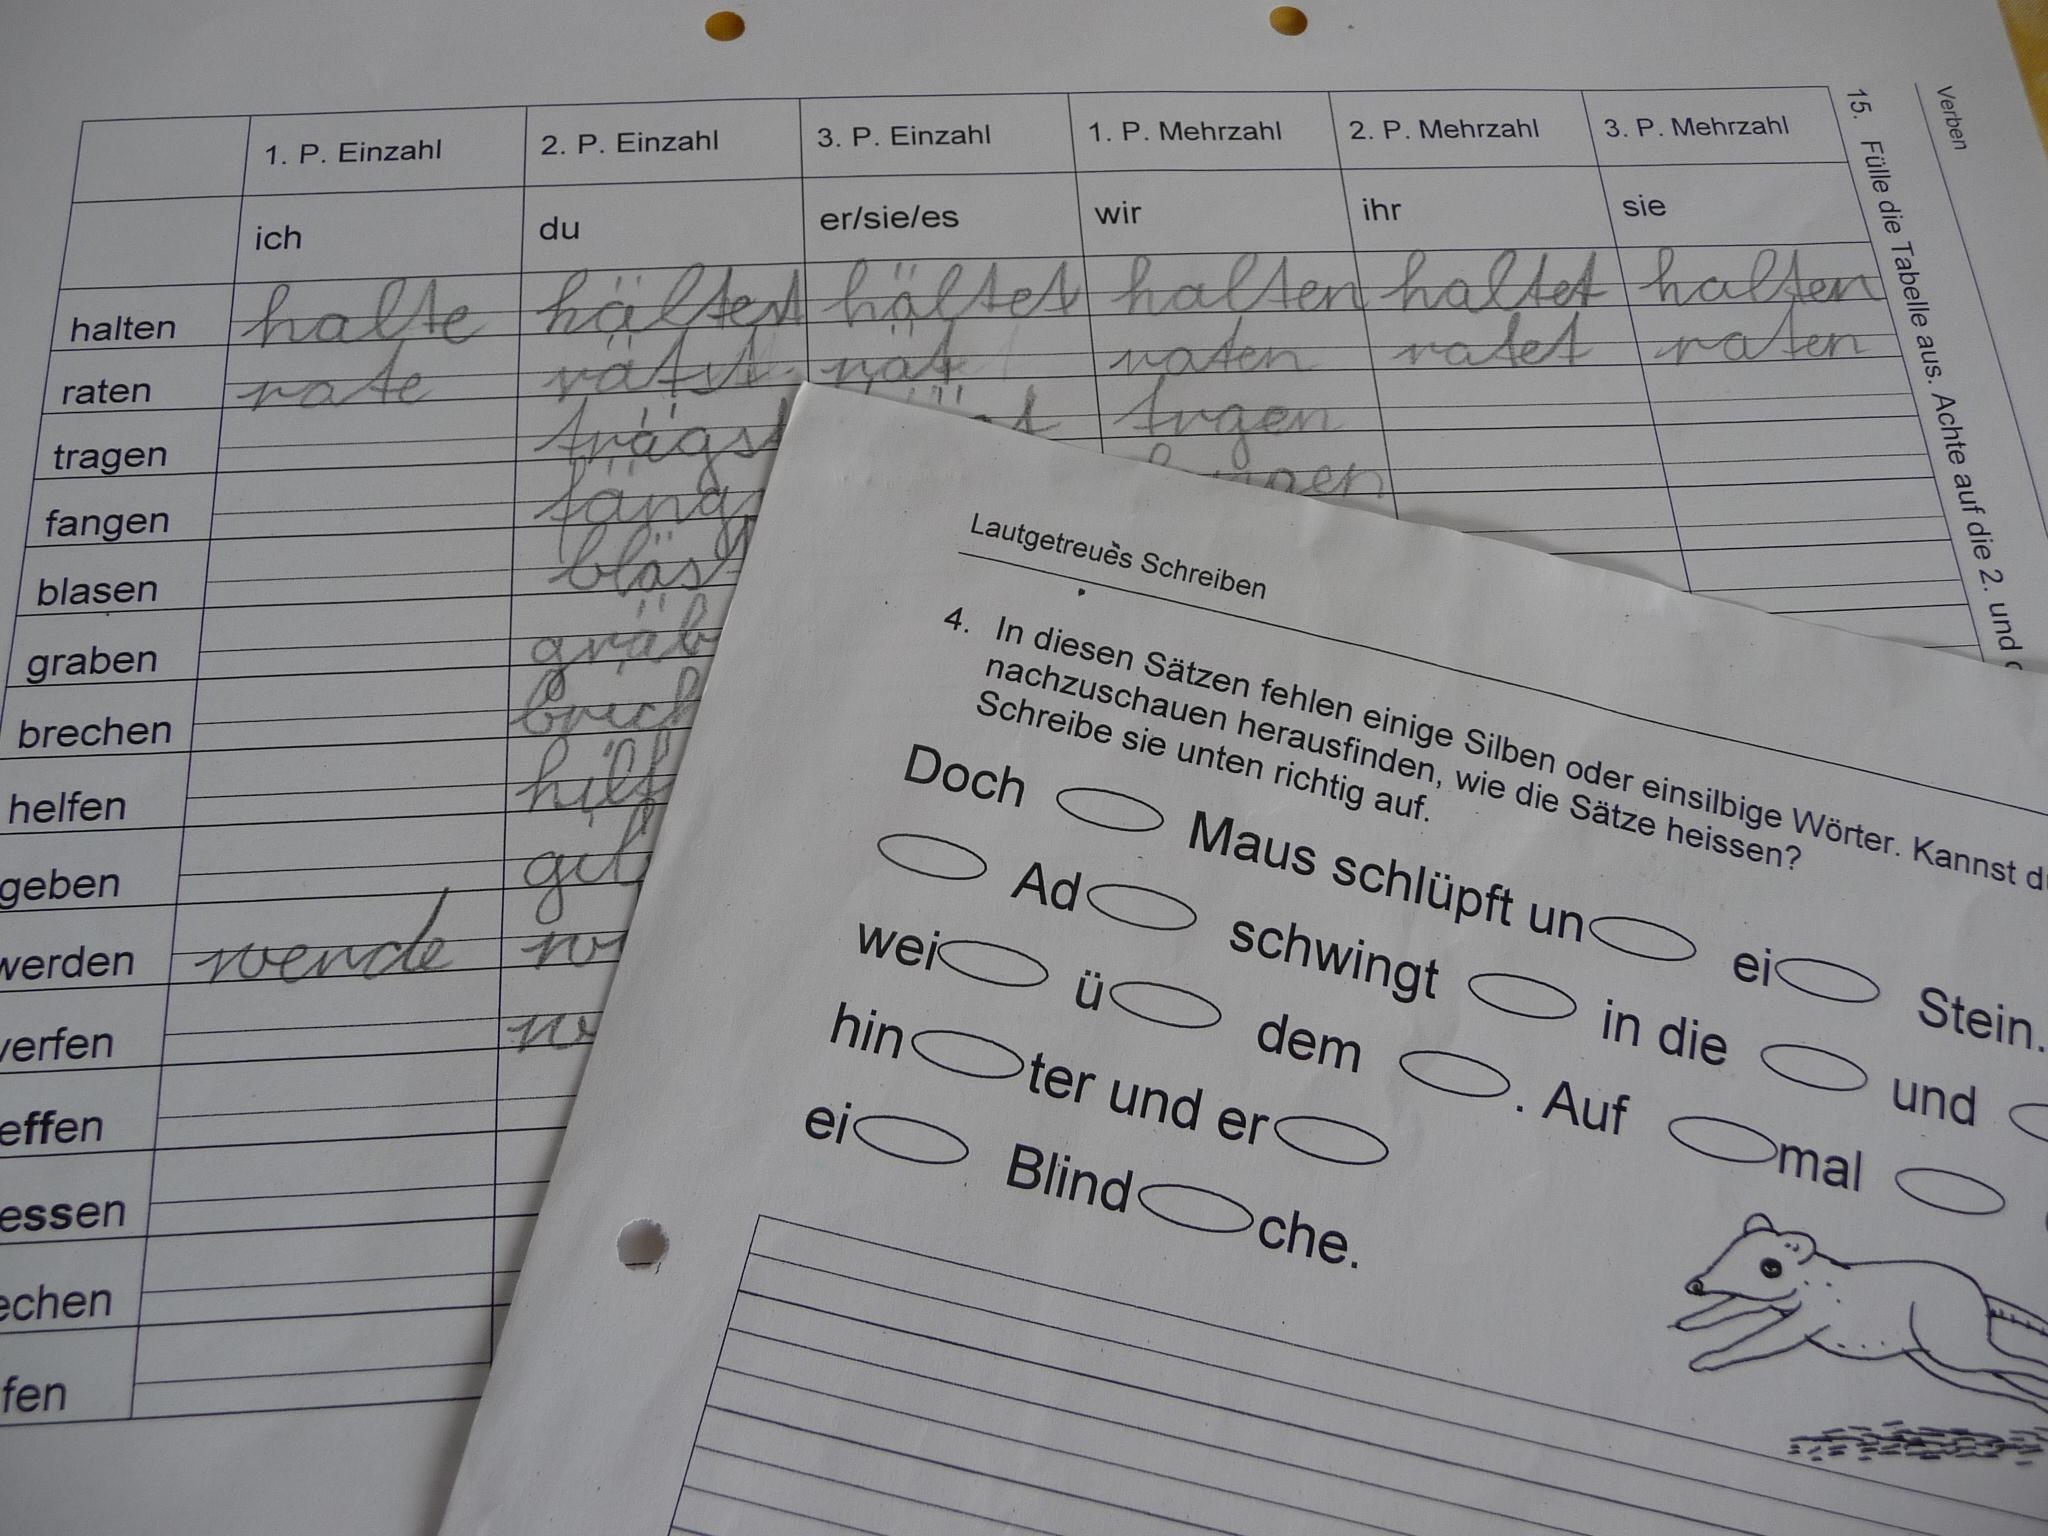 Verben
15. Fülle die Tabelle aus. Achte auf die 2. und
1. P. Einzahl 2. P. Einzahl 3. P. Einzahl 1. P. Mehrzahl 2. P. Mehrzahl 3. P. Mehrzahl
ich du er/sie/es wir ihr sie
halten halte hältest hältet halten haltet halten
raten rate rätst rät raten ratet raten
tragen trägst trgen
fangen fäng
blasen bläs
graben gräb
brechen brich
helfen hilf
geben gib
werden werde
erfen
effen
essen
echen
fen
Lautgetreues Schreiben
4. In diesen Sätzen fehlen einige Silben oder einsilbige Wörter. Kannst du
nachzuschauen herausfinden, wie die Sätze heissen?
Schreibe sie unten richtig auf.
Doch Maus schlüpft un ei Stein.
Ad schwingt in die und
wei ü dem . Auf mal
hin ter und er
ei Blind che.